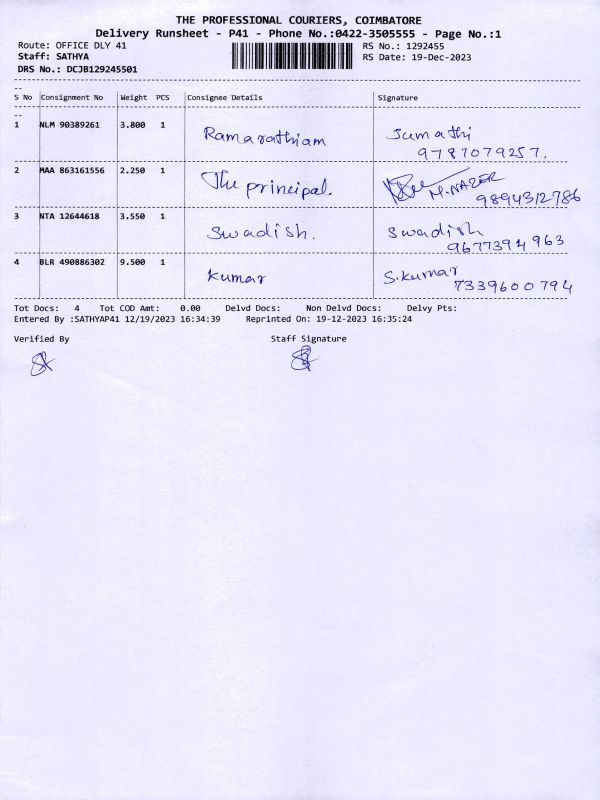 THE PROFESSIONAL COURIERS, COIMBATORE
Delivery Runsheet - P41 - Phone No.:0422-3505555 - Page No.:1
Route: OFFICE DLY 41 RS No.: 1292455
Staff: SATHYA RS Date: 19-Dec-2023
DRS No.: DCJB129245501
S No Consignment No Weight PCS Consignee Details Signature
1 NLM 90389261 3.800 1 Ramarathiam Sumathi
9787079257.
2 MAA 863161556 2.250 1 The principal. M.NAZER
9894312786
3 NTA 12644618 3.550 1 Swadish. Swadish
9677394963
4 BLR 490886302 9.500 1 Kumar S.Kumar
7339600794
Tot Docs: 4 Tot COD Amt: 0.00 Delvd Docs: Non Delvd Docs: Delvy Pts:
Entered By :SATHYAP41 12/19/2023 16:34:39 Reprinted On: 19-12-2023 16:35:24
Verified By Staff Signature